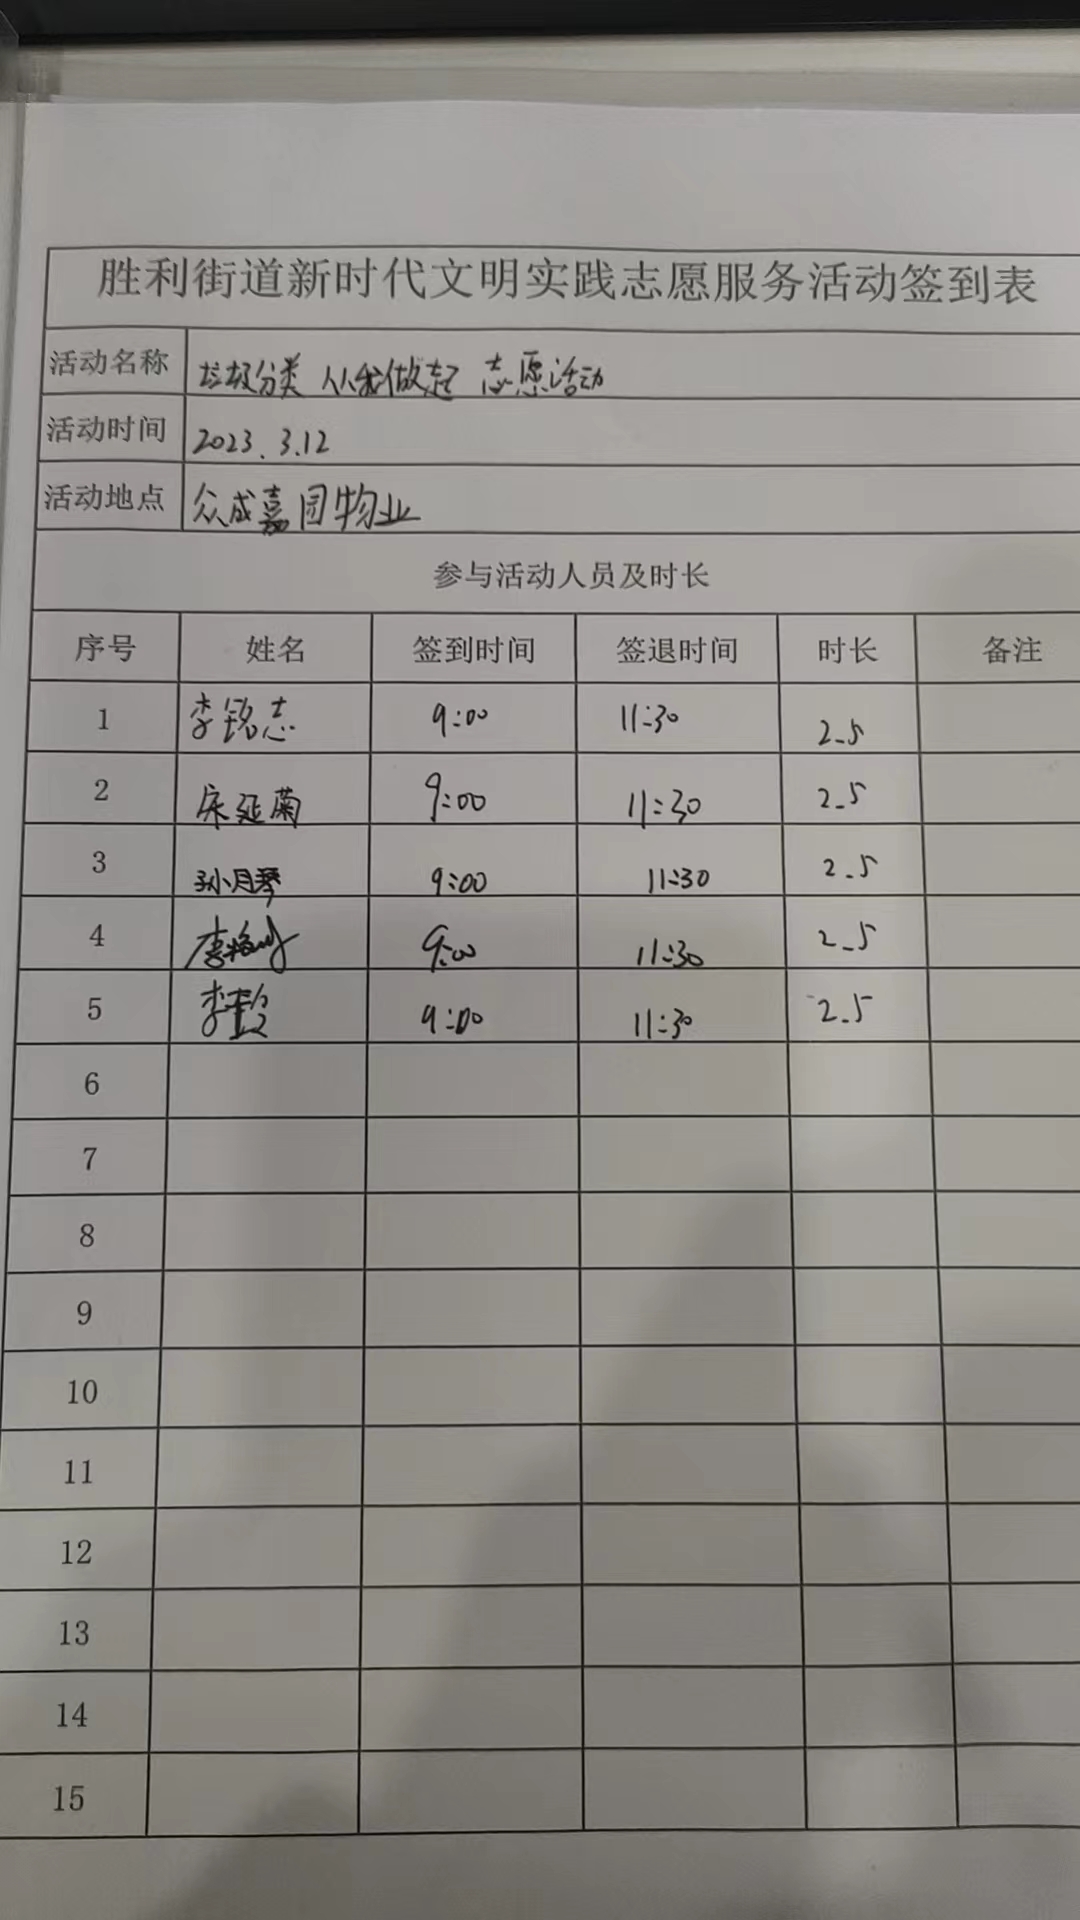 胜利街道新时代文明实践志愿服务活动签到表
活动名称 垃圾分类 从我做起 志愿活动
活动时间 2023.3.12
活动地点 众成嘉园物业
参与活动人员及时长
序号 姓名 签到时间 签退时间 时长 备注
1 李铭志 9:00 11:30 2.5
2 宋延菊 9:00 11:30 2.5
3 孙月琴 9:00 11:30 2.5
4 9:00 11:30 2.5
5 9:00 11:30 2.5
6
7
8
9
10
11
12
13
14
15